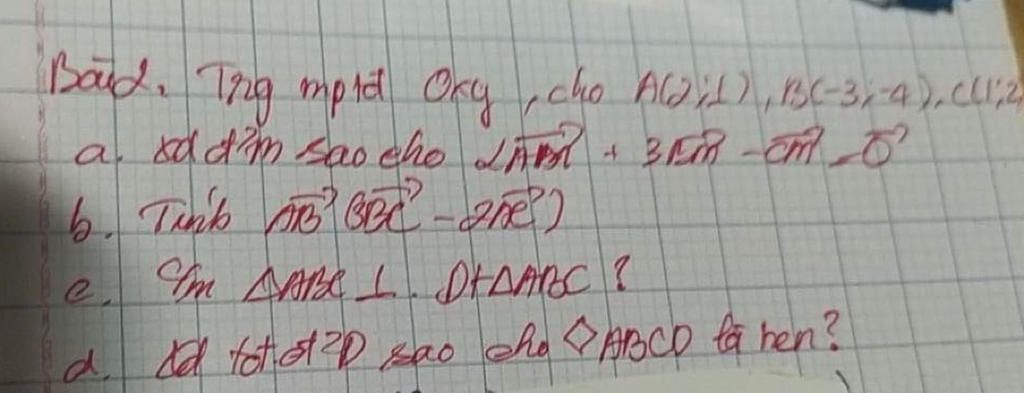 Bài 2. Trg mptđ Oxy, cho A(2;1), B(-3;-4), C(1;2
a. xđ đ'm sao cho 2AM⃗ + 3BM⃗ - CM⃗ = 0⃗
b. Tính AB⃗ (3BC⃗ - 2AC⃗)
c. C/m △ABC ⊥. Dt △ABC ?
d. xđ tđ đ² D sao cho ◇ABCD là hcn?